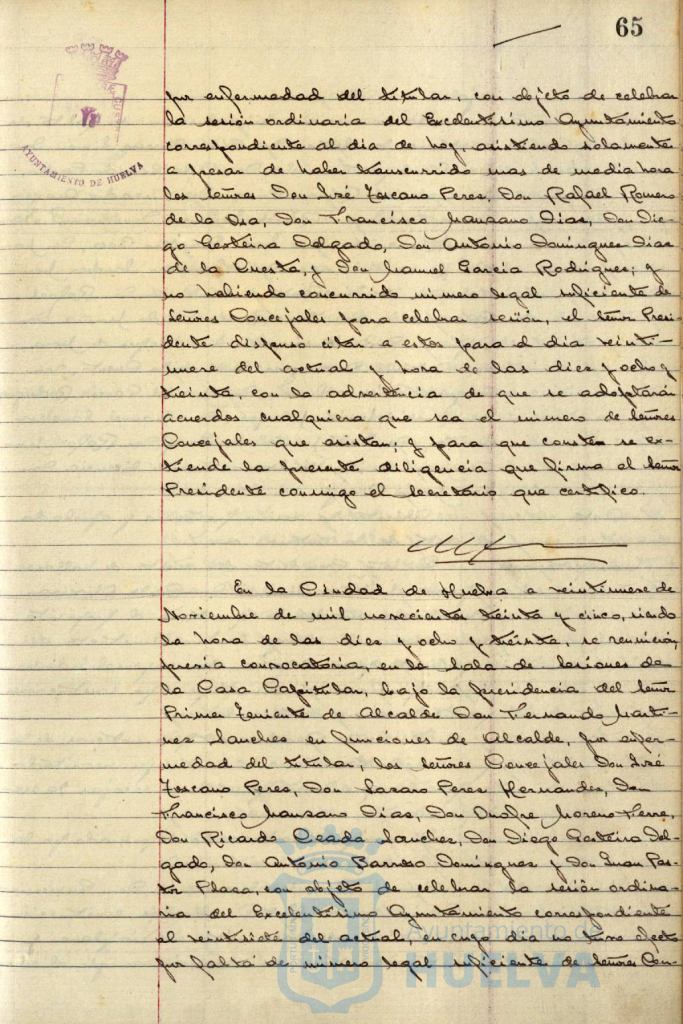 65
AYUNTAMIENTO DE HUELVA
por enfermedad del titular, con objeto de celebrar
la sesión ordinaria del Excelentísimo Ayuntamiento
correspondiente al día de hoy, asistiendo solamente
a pesar de haber transcurrido mas de media hora
los señores Don José Toscano Peres, Don Rafael Romero
de la Osa, Don Francisco Manzano Dias, Don Die-
go Gesteira Delgado, Don Antonio Domingues Dias
de la Cuesta, y Don Manuel Garcia Rodrigues; y
no habiendo concurrido número legal suficiente de
Señores Concejales para celebrar sesión, el Señor Presi-
dente dispuso citar a estos para el dia veinti-
nueve del actual y hora de las dies y ocho y
treinta, con la advertencia de que se adoptarán
acuerdos cualquiera que sea el número de Señores
Concejales que asistan; y para que conste se ex-
tiende la presente diligencia que firma el Señor
Presidente conmigo el Secretario que certifico.
En la Ciudad de Huelva a veintinueve de
Noviembre de mil novecientos treinta y cinco, siendo
la hora de las dies y ocho y treinta, se reunieron,
previa convocatoria, en la Sala de Sesiones de
la Casa Capitular, bajo la presidencia del Señor
Primer Teniente de Alcalde Don Fernando Marti-
nez Sanches en funciones de Alcalde, por enfer-
medad del titular, los Señores Concejales Don José
Toscano Peres, Don Lazaro Peres Hernandes, Don
Francisco Manzano Dias, Don Onofre Moreno Ferre,
Don Ricardo Ceada Sanches, Don Diego Gesteira Del-
gado, Don Antonio Barroso Domingues y Don Juan Pas-
tor Plaza, con objeto de celebrar la sesión ordina-
ria del Excelentísimo Ayuntamiento correspondiente
al veintisiete del actual, en cuyo dia no tuvo efecto
por falta de número legal suficiente de Señores Con-
Ayuntamiento de
HUELVA